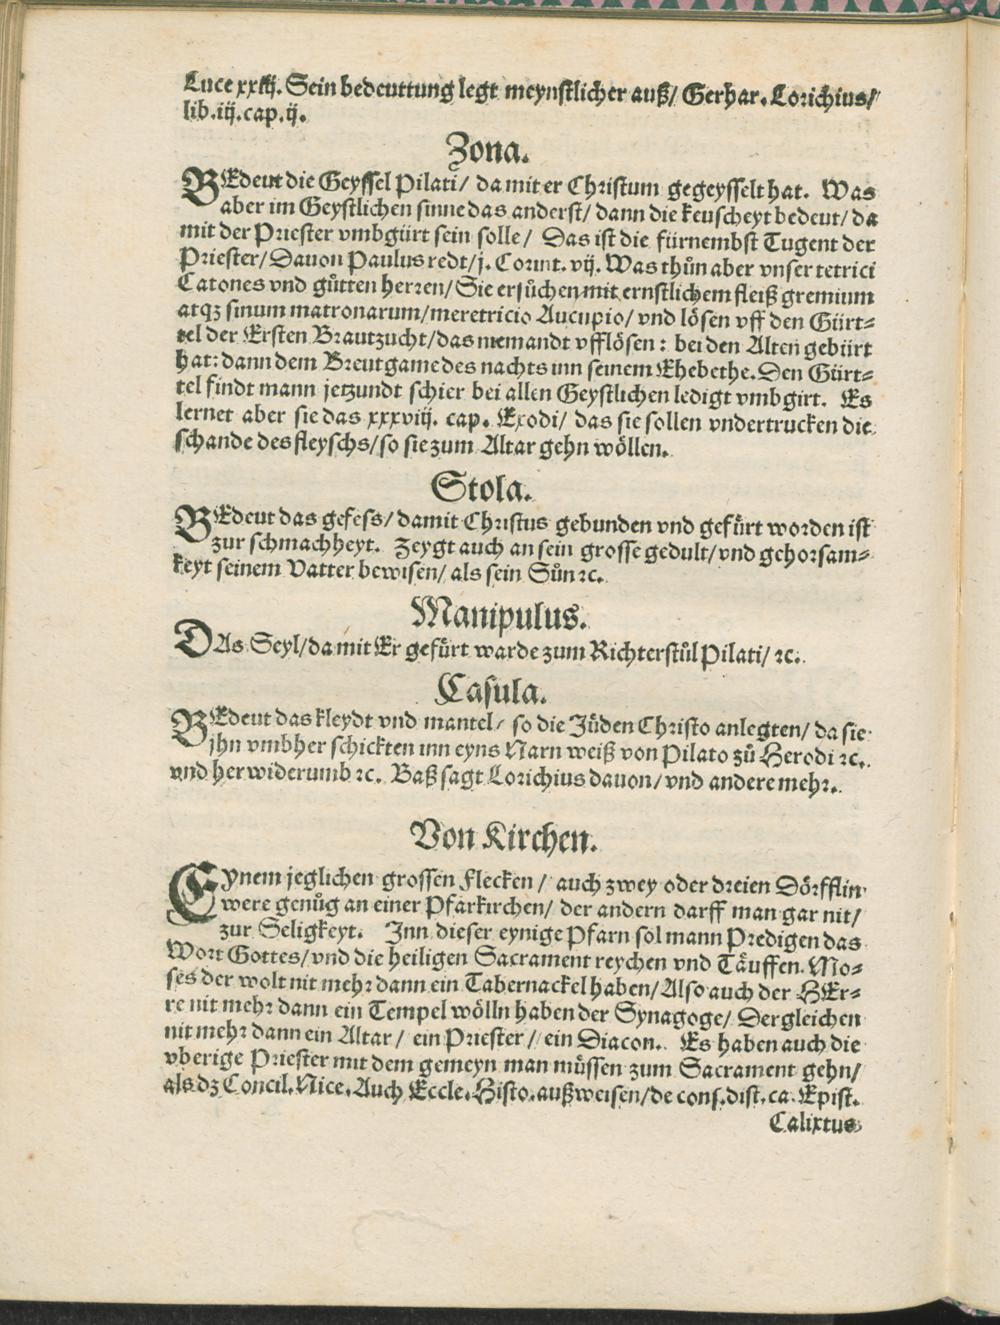 Luce xxiij. Sein bedeuttung legt meynstlicher auß/ Gerhar. Lorichius/
lib. iij. cap. ij.
Zona.
BEdeut die Geyssel Pilati/ da mit er Christum gegeysselt hat. Was
aber im Geystlichen sinne das anderst/ dann die keuscheyt bedeut/ da
mit der Priester vmbgürt sein solle/ Das ist die fürnembst Tugent der
Priester/ Dauon Paulus redt/ j. Corint. vij. Was thůn aber vnser tetrici
Catones vnd gůtten herren/ Sie ersůchen mit ernstlichem fleiß gremium
atqꝫ sinum matronarum/ meretricio Aucupio/ vnd lösen vff den Gürt⸗
tel der Ersten Brautzucht/ das niemandt vfflösen: bei den Alten gebürt
hat: dann dem Breutgame des nachts inn seinem Ehebethe. Den Gürt⸗
tel findt mann jetzundt schier bei allen Geystlichen ledigt vmbgirt. Es
lernet aber sie das xxxviij. cap. Exodi/ das sie sollen vndertrucken die
schande des fleyschs/ so sie zum Altar gehn wöllen.
Stola.
BEdeut das gefess/ damit Christus gebunden vnd gefürt worden ist
zur schmachheyt. Zeygt auch an sein grosse gedult/ vnd gehorsam⸗
keyt seinem Vatter bewisen/ als sein Sůn ꝛc.
Manipulus.
DAs Seyl/ da mit Er gefürt warde zum Richterstůl Pilati/ ꝛc.
Casula.
BEdeut das kleydt vnd mantel/ so die Jüden Christo anlegten/ da sie
jhn vmbher schickten inn eyns Narn weiß von Pilato zů Herodi ꝛc.
vnd her widerumb ꝛc. Baß sagt Lorichius dauon/ vnd andere mehr.
Von Kirchen.
Eynem jeglichen grossen Flecken/ auch zwey oder dreien Dörfflin
were genůg an einer Pfarkirchen/ der andern darff man gar nit/
zur Seligkeyt. Inn dieser eynige Pfarn sol mann Predigen das
Wort Gottes/ vnd die heiligen Sacrament reychen vnd Täuffen. Mo⸗
ses der wolt nit mehr dann ein Tabernackel haben/ Also auch der HEr⸗
re nit mehr dann ein Tempel wölln haben der Synagoge/ Dergleichen
nit mehr dann ein Altar/ ein Priester/ ein Diacon. Es haben auch die
vberige Priester mit dem gemeyn man müssen zum Sacrament gehn/
als dz Concil. Nice. Auch Eccle. Histo. außweisen/ de cons. dist. ca. Epist.
Calixtus